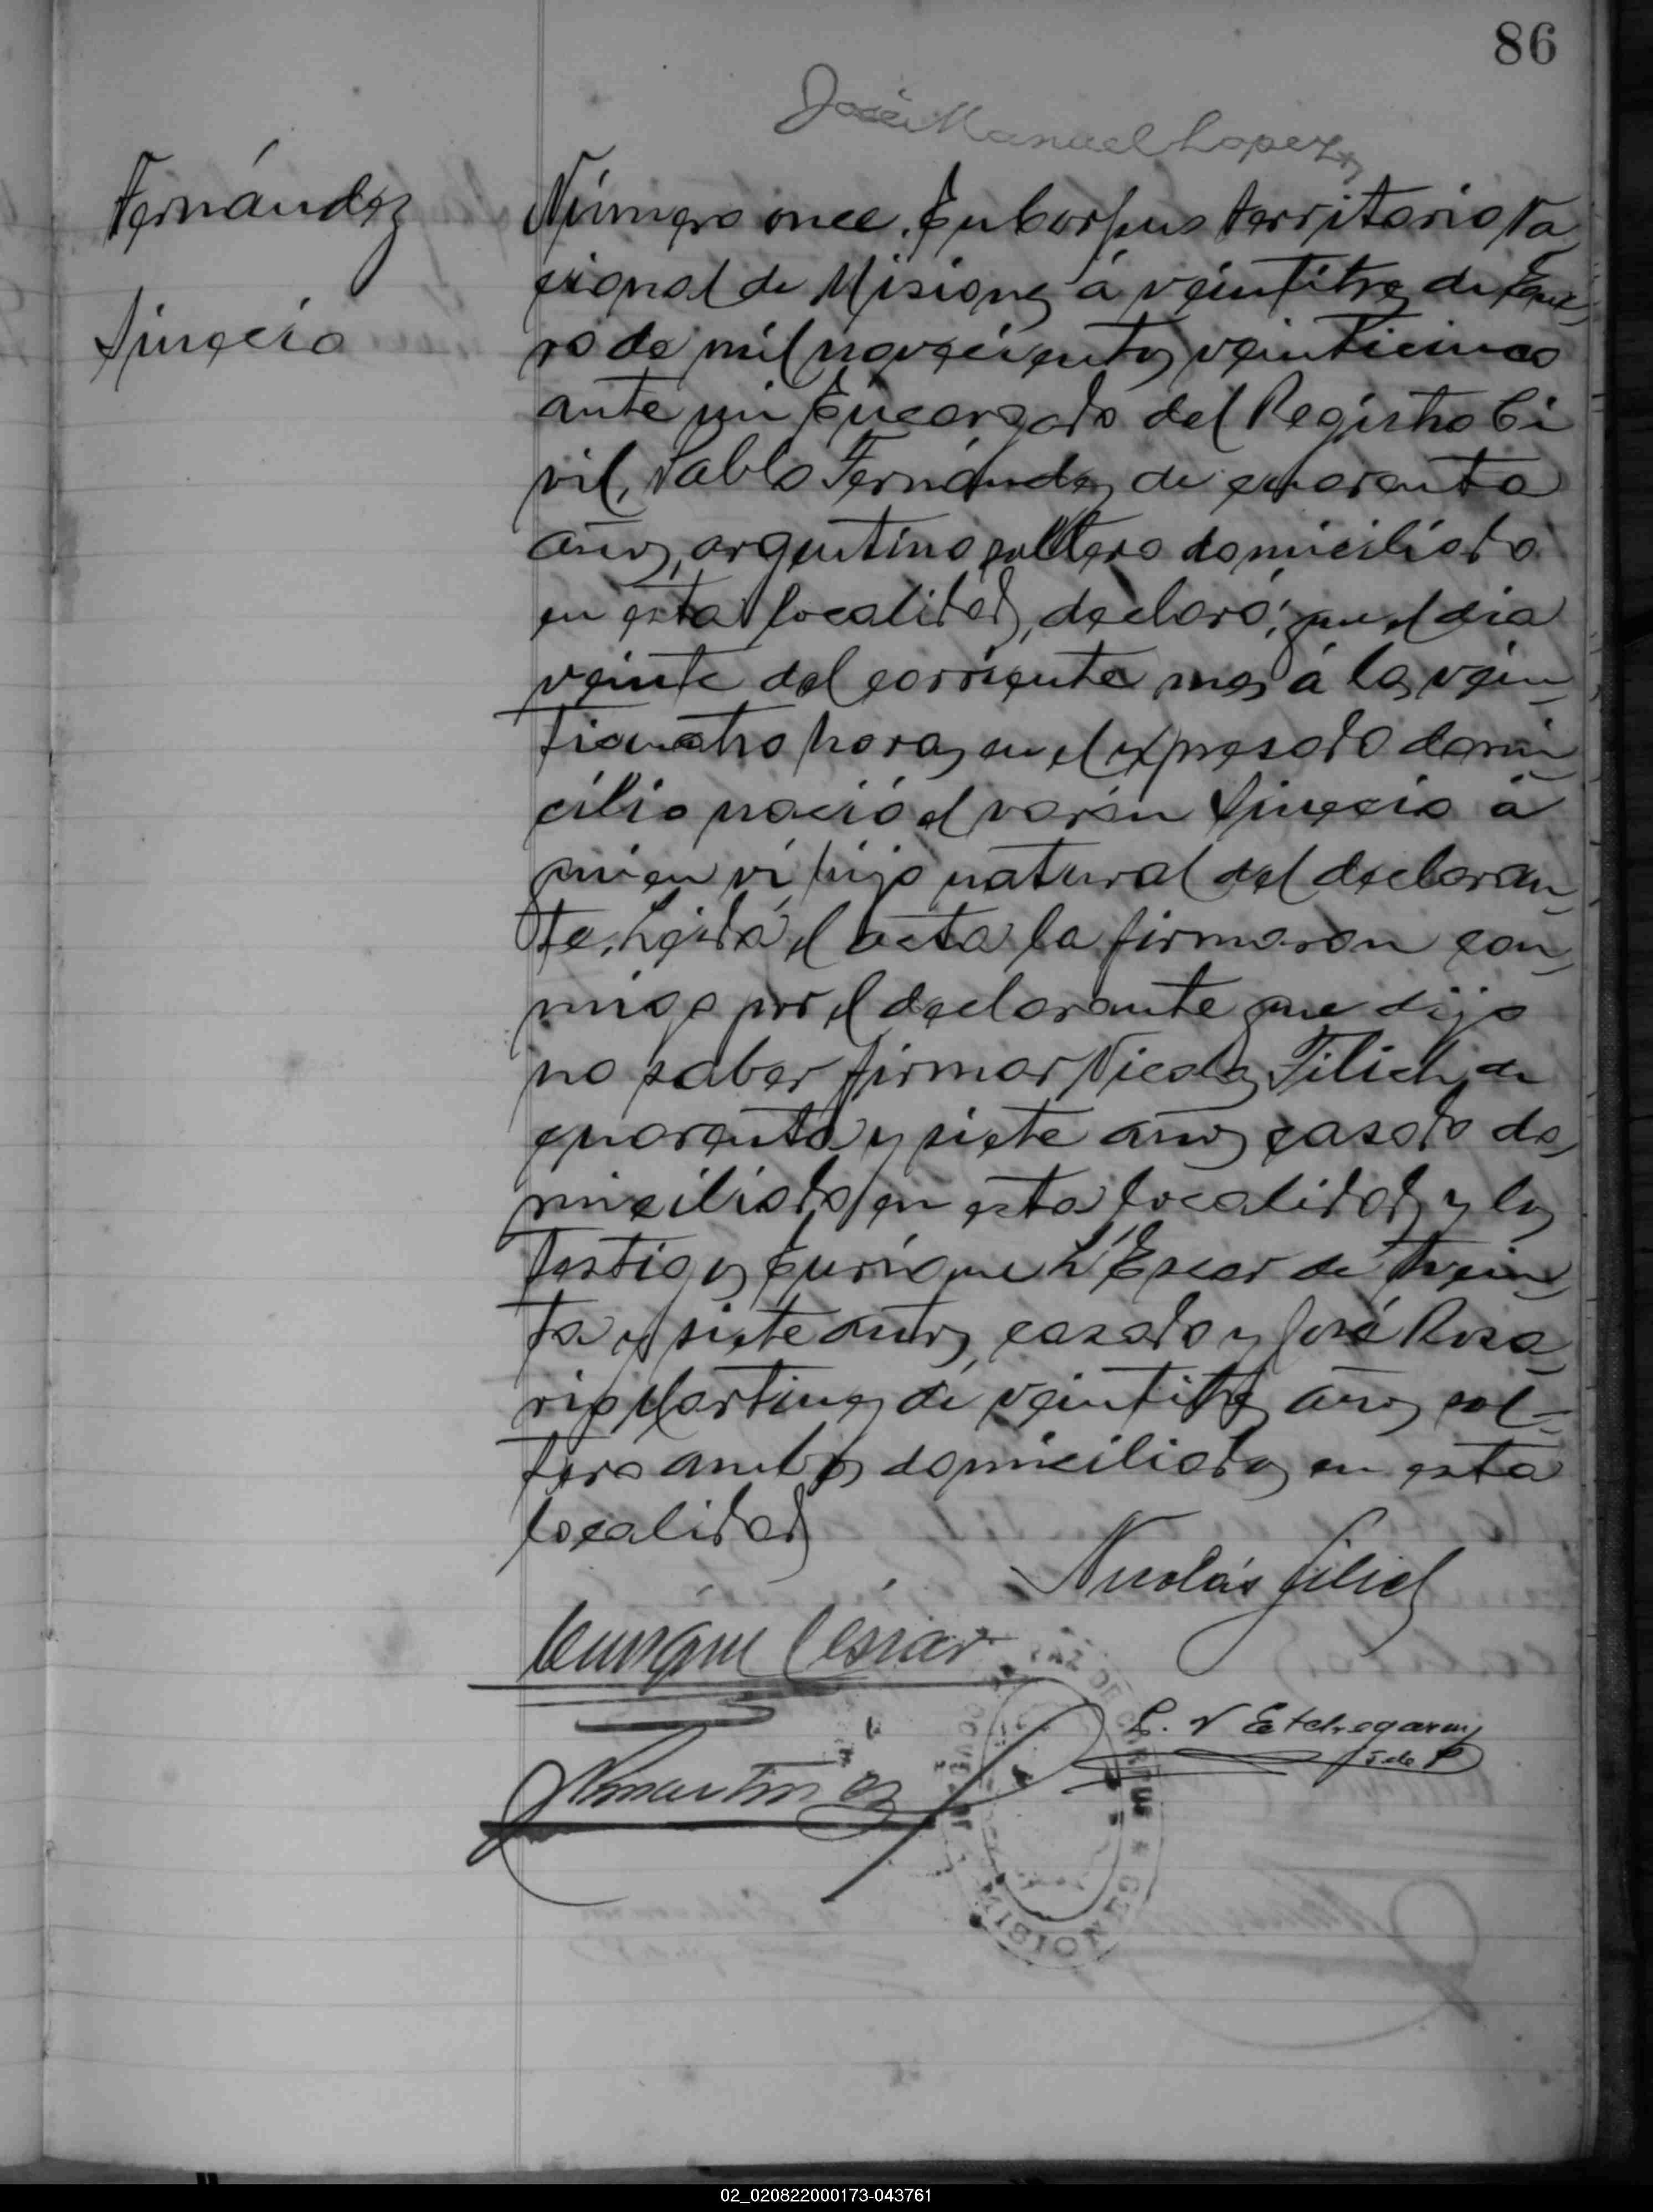 86
José Manuel Lopez
Fernández
Sinecio
Número once. En Corpus territorio Na
cional de Misiones á veintitres de Ene
ro de mil novecientos veinticinco
ante mi Encargado del Registro Ci
vil, Pablo Fernandez de cuarenta
años, argentino soltero domiciliado
en esta localidad, declaró; que el dia
veinte del corriente mes á las vein
ticuatro horas en el expresado domi
cilio nació el varón Sinecio á
quien vi, hijo natural del declaran
te. Leida el acta la firmaron con
migo por el declarante que dijo
no saber firmar Nicolas Filich de
cuarenta y siete años casado do
miciliado en esta localidad y los
testigos Enrique L'Escar de trein
ta y siete años, casado y José Rosa
rio Martinez de veintitres años sol-
tero ambos domiciliados en esta
localidad
Nicolás Filich
Enrique Lescar
JRMartinez
L. V Etchegaray
J de P
02_020822000173-043761